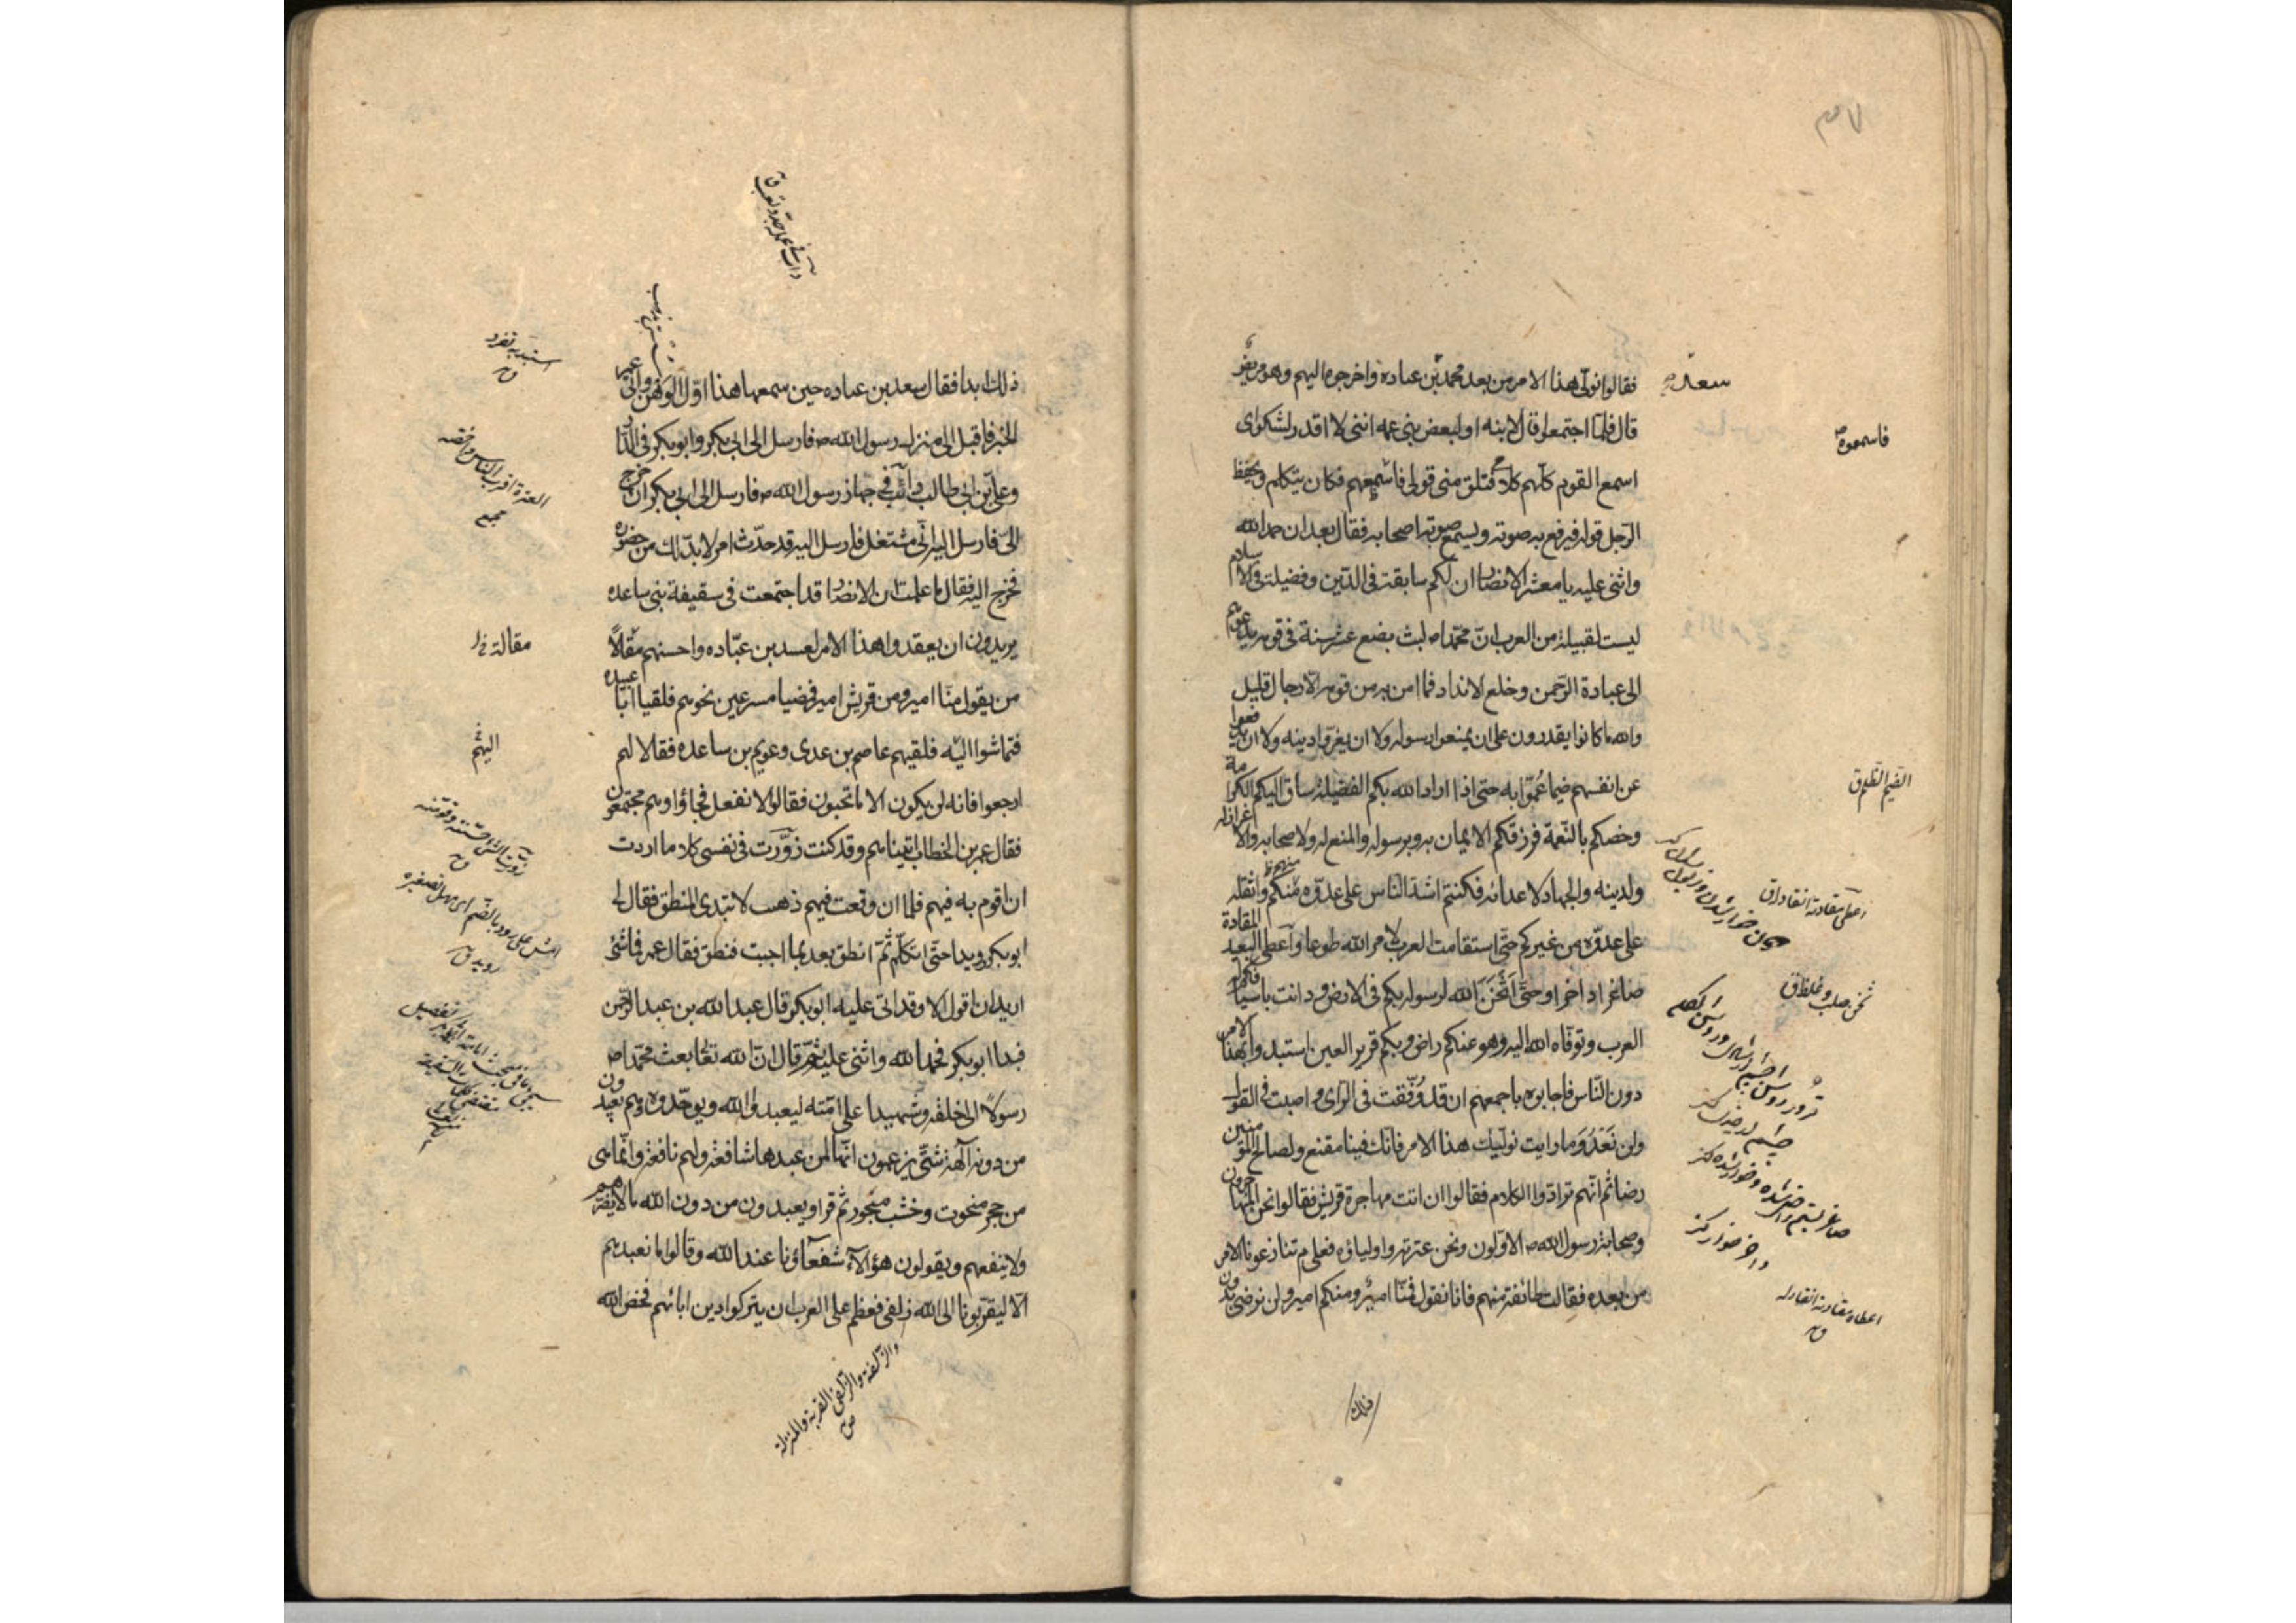 فقالوا نولى هذا الامر من بعد محمد بن عباده واخرجوه اليهم وهو مريض
سعد
قال فلما اجتمعوا قال لابنه او لبعض بنى عمه اننى لا اقدر لشكواى
فاسمعوه
اسمع القوم كلهم كلامى فتلق منى قولى فاسمعهم فكان يتكلم ويحفظ
الرجل قوله فيرفع به صوته ويسمع صوته اصحابه فقال بعد ان حمد الله
واثنى عليه يا معشر الانصار ان لكم سابقة فى الدين وفضيلة فى الاسلام
ليست لقبيلة من العرب ان محمدا ص لبث بضع عشر سنة فى قومه يدعوهم
الى عبادة الرحمن وخلع الانداد فما امن به من قومه الا رجال قليل
والله ما كانوا يقدرون على ان يمنعوا رسوله ولا ان يعرفوا دينه ولا ان يدفعوا
عن انفسهم ضيما عموا به حتى اذا اراد الله بكم الفضيلة ساق اليكم الكرامة
الضيم الظلم ق
وخصكم بالنعمة فرزقكم الايمان به وبرسوله والمنع له ولاصحابه والاعزاز له
ولدينه والجهاد لاعدائه فكنتم اشد الناس على عدوه منكم واثقله
منهم
على عدوه من غيركم حتى استقامت العرب لامر الله طوعا واعطى البعيد المقادة
صاغرا داخرا وحتى اثخن الله لرسوله بكم فى الارض ودانت باسيافكم له
ثخن صلب وغلظ ق
العرب وتوفاه الله اليه وهو عنكم راض وبكم قرير العين استبدوا بهذا الامر
دون الناس فاجابوه باجمعهم ان قد وفقت فى الراى واصبت فى القول
ولن نعدو ما رايت نوليك هذا الامر فانك فينا مقنع ولصالح المؤمنين
رضا ثم انهم ترادوا الكلام فقالوا ان ابت مهاجرة قريش فقالوا نحن المهاجرون
وصحابة رسول الله ص الاولون ونحن عترته واولياؤه فعلى م تنازعونا الامر
من بعده فقالت طائفة منهم فانا نقول فمنا امير ومنكم امير ولن نرضى بدون
اعطاه مقادته انقاد له
ق
ذلك
ذلك ابدا فقال سعد بن عباده حين سمعها هذا اول الوهن واتى عمر
استبد به تفرد
ق
الخبر فاقبل الى منزل رسول الله ص فارسل الى ابى بكر وابو بكر فى الدار
وعلى بن ابى طالب دائب فى جهاز رسول الله ص فارسل الى ابى بكر ان اخرج
الى فارسل اليه انى مشتغل فارسل اليه قد حدث امر لا بد لك من حضوره
فخرج اليه فقال ما علمت ان الانصار قد اجتمعت فى سقيفة بنى ساعده
يريدون ان يعقدوا هذا الامر لسعد بن عباده واحسنهم مقالا
مقالة
من يقول منا امير ومن قريش امير فمضيا مسرعين نحوهم فلقيا ابا عبيده
فتماشوا اليه فلقيهم عاصم بن عدى وعويم بن ساعده فقالا لهم
اليهم
ارجعوا فانه لن يكون الا ما تحبون فقالوا لا نفعل فجاؤا وهم مجتمعون
فقال عمر بن الخطاب اتيناهم وقد كنت زورت فى نفسى كلاما اردت
ان اقوم به فيهم فلما ان وقعت فيهم ذهبت لابتدى المنطق فقال لى
ابو بكر رويدا حتى اتكلم ثم انطق بعد بما احببت فنطق فقال عمر فما شئ
اريد ان اقول الا وقد اتى عليه ابو بكر قال عبد الله بن عبد الرحمن
فبدا ابو بكر فحمد الله واثنى عليه ثم قال ان الله تعالى بعث محمدا ص
رسولا الى خلقه وشهيدا على امته ليعبدوا الله ويوحدوه وهم يعبدون
من دونه آلهة شتى يزعمون انها لمن عبدها شافعة ولهم نافعة وانما هى
من حجر منحوت وخشب منجور ثم قرا ويعبدون من دون الله ما لا يضرهم
ولا ينفعهم ويقولون هؤلاء شفعاؤنا عند الله وقالوا ما نعبدهم
الا ليقربونا الى الله زلفى فعظم على العرب ان يتركوا دين ابائهم فخص الله
والزلفة والزلفى القربة والمنزلة